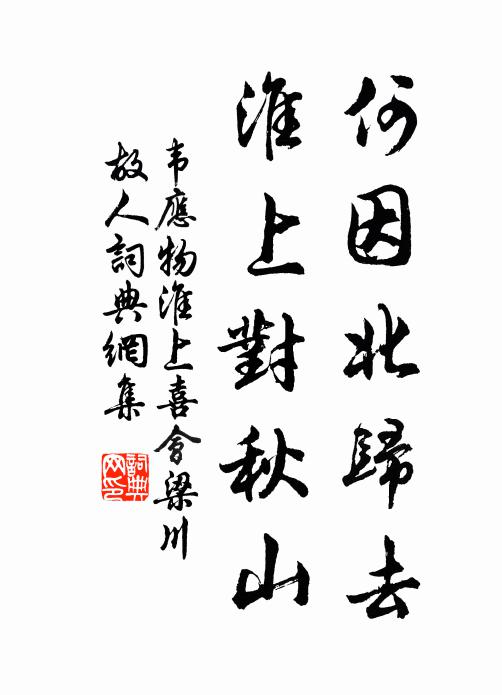 何因北歸去
淮上對秋山
韦應物淮上喜會梁川
故人詞典網集
詞典网印